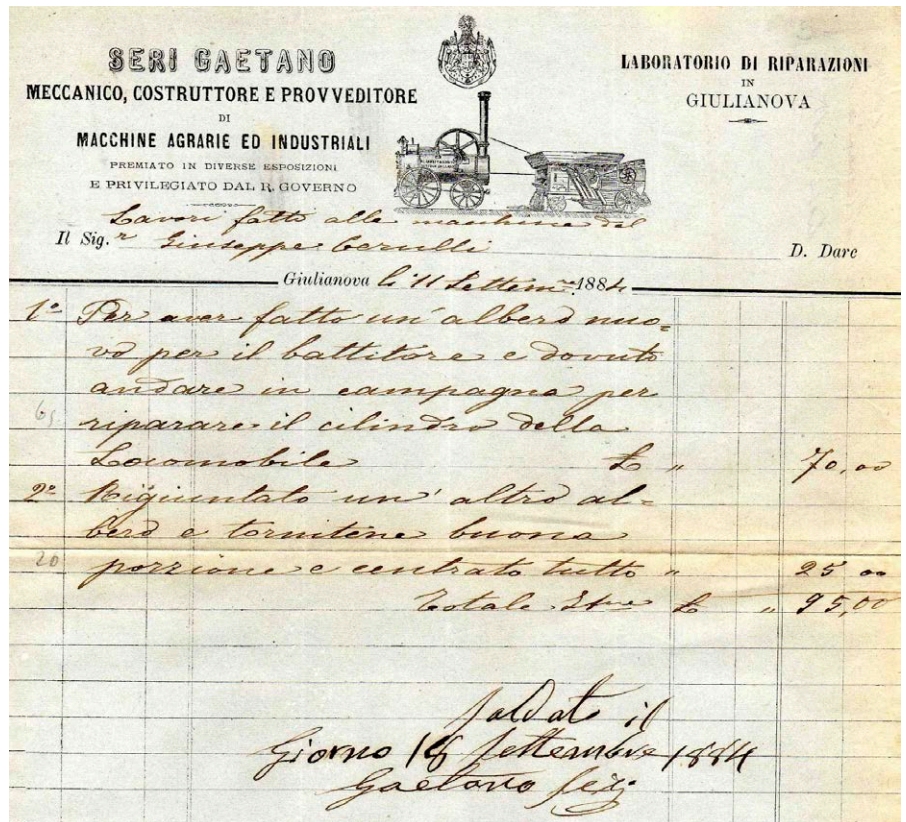 SERI GAETANO
MECCANICO, COSTRUTTORE E PROVVEDITORE
DI
MACCHINE AGRARIE ED INDUSTRIALI
PREMIATO IN DIVERSE ESPOSIZIONI
E PRIVILEGIATO DAL R. GOVERNO
LABORATORIO DI RIPARAZIONI
IN
GIULIANOVA
Lavori fatto alle macchine del
Il Sig.r Giuseppe Cerulli D. Dare
Giulianova li 11 Settem 1884
1º Per aver fatto un' albero nuo=
vo per il battitore e dovuto
andare in campagna per
65 riparare il cilindro della
Locomobile £ " 70,00
2º Rigiuntato un' altro al=
bero e tornitene buona
20 porzione e centrato tutto " 25 00
Totale £ " 95,00
Saldato il
Giorno 18 Settembre 1884
Gaetano Seri